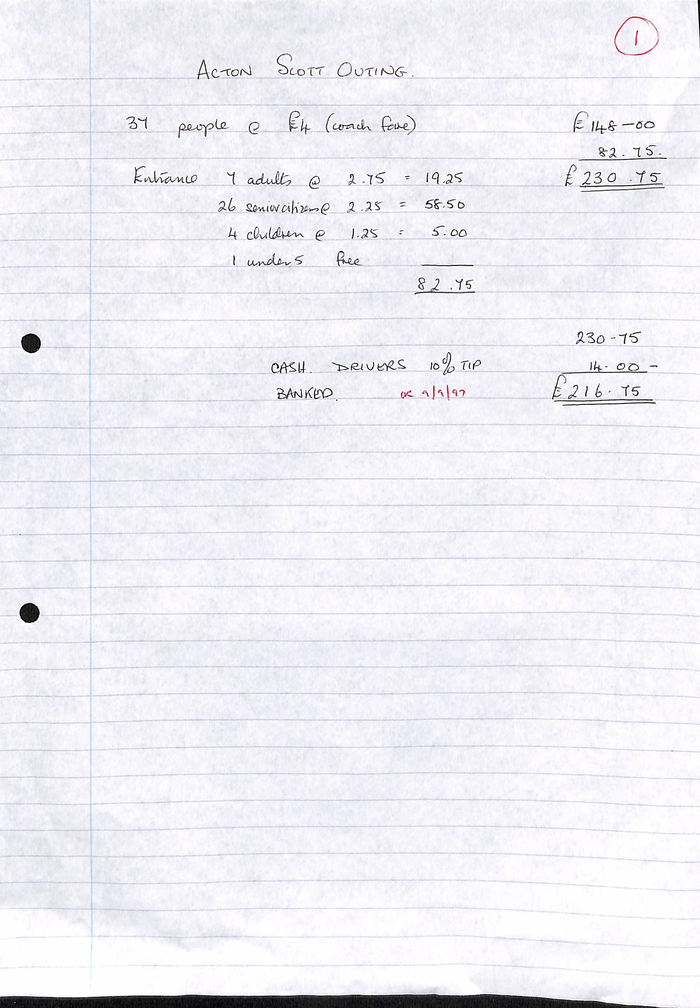 1
ACTON SCOTT OUTING.
37 people @ £4 (coach fare) £148-00
82.75.
Entrance 7 adults @ 2.75 = 19.25 £230.75
26 senior citizens @ 2.25 = 58.50
4 children @ 1.25 = 5.00
1 under 5 free
82.75
230-75
CASH. DRIVERS 10% TIP 14.00 -
BANKED. 9/9/97 £216.75